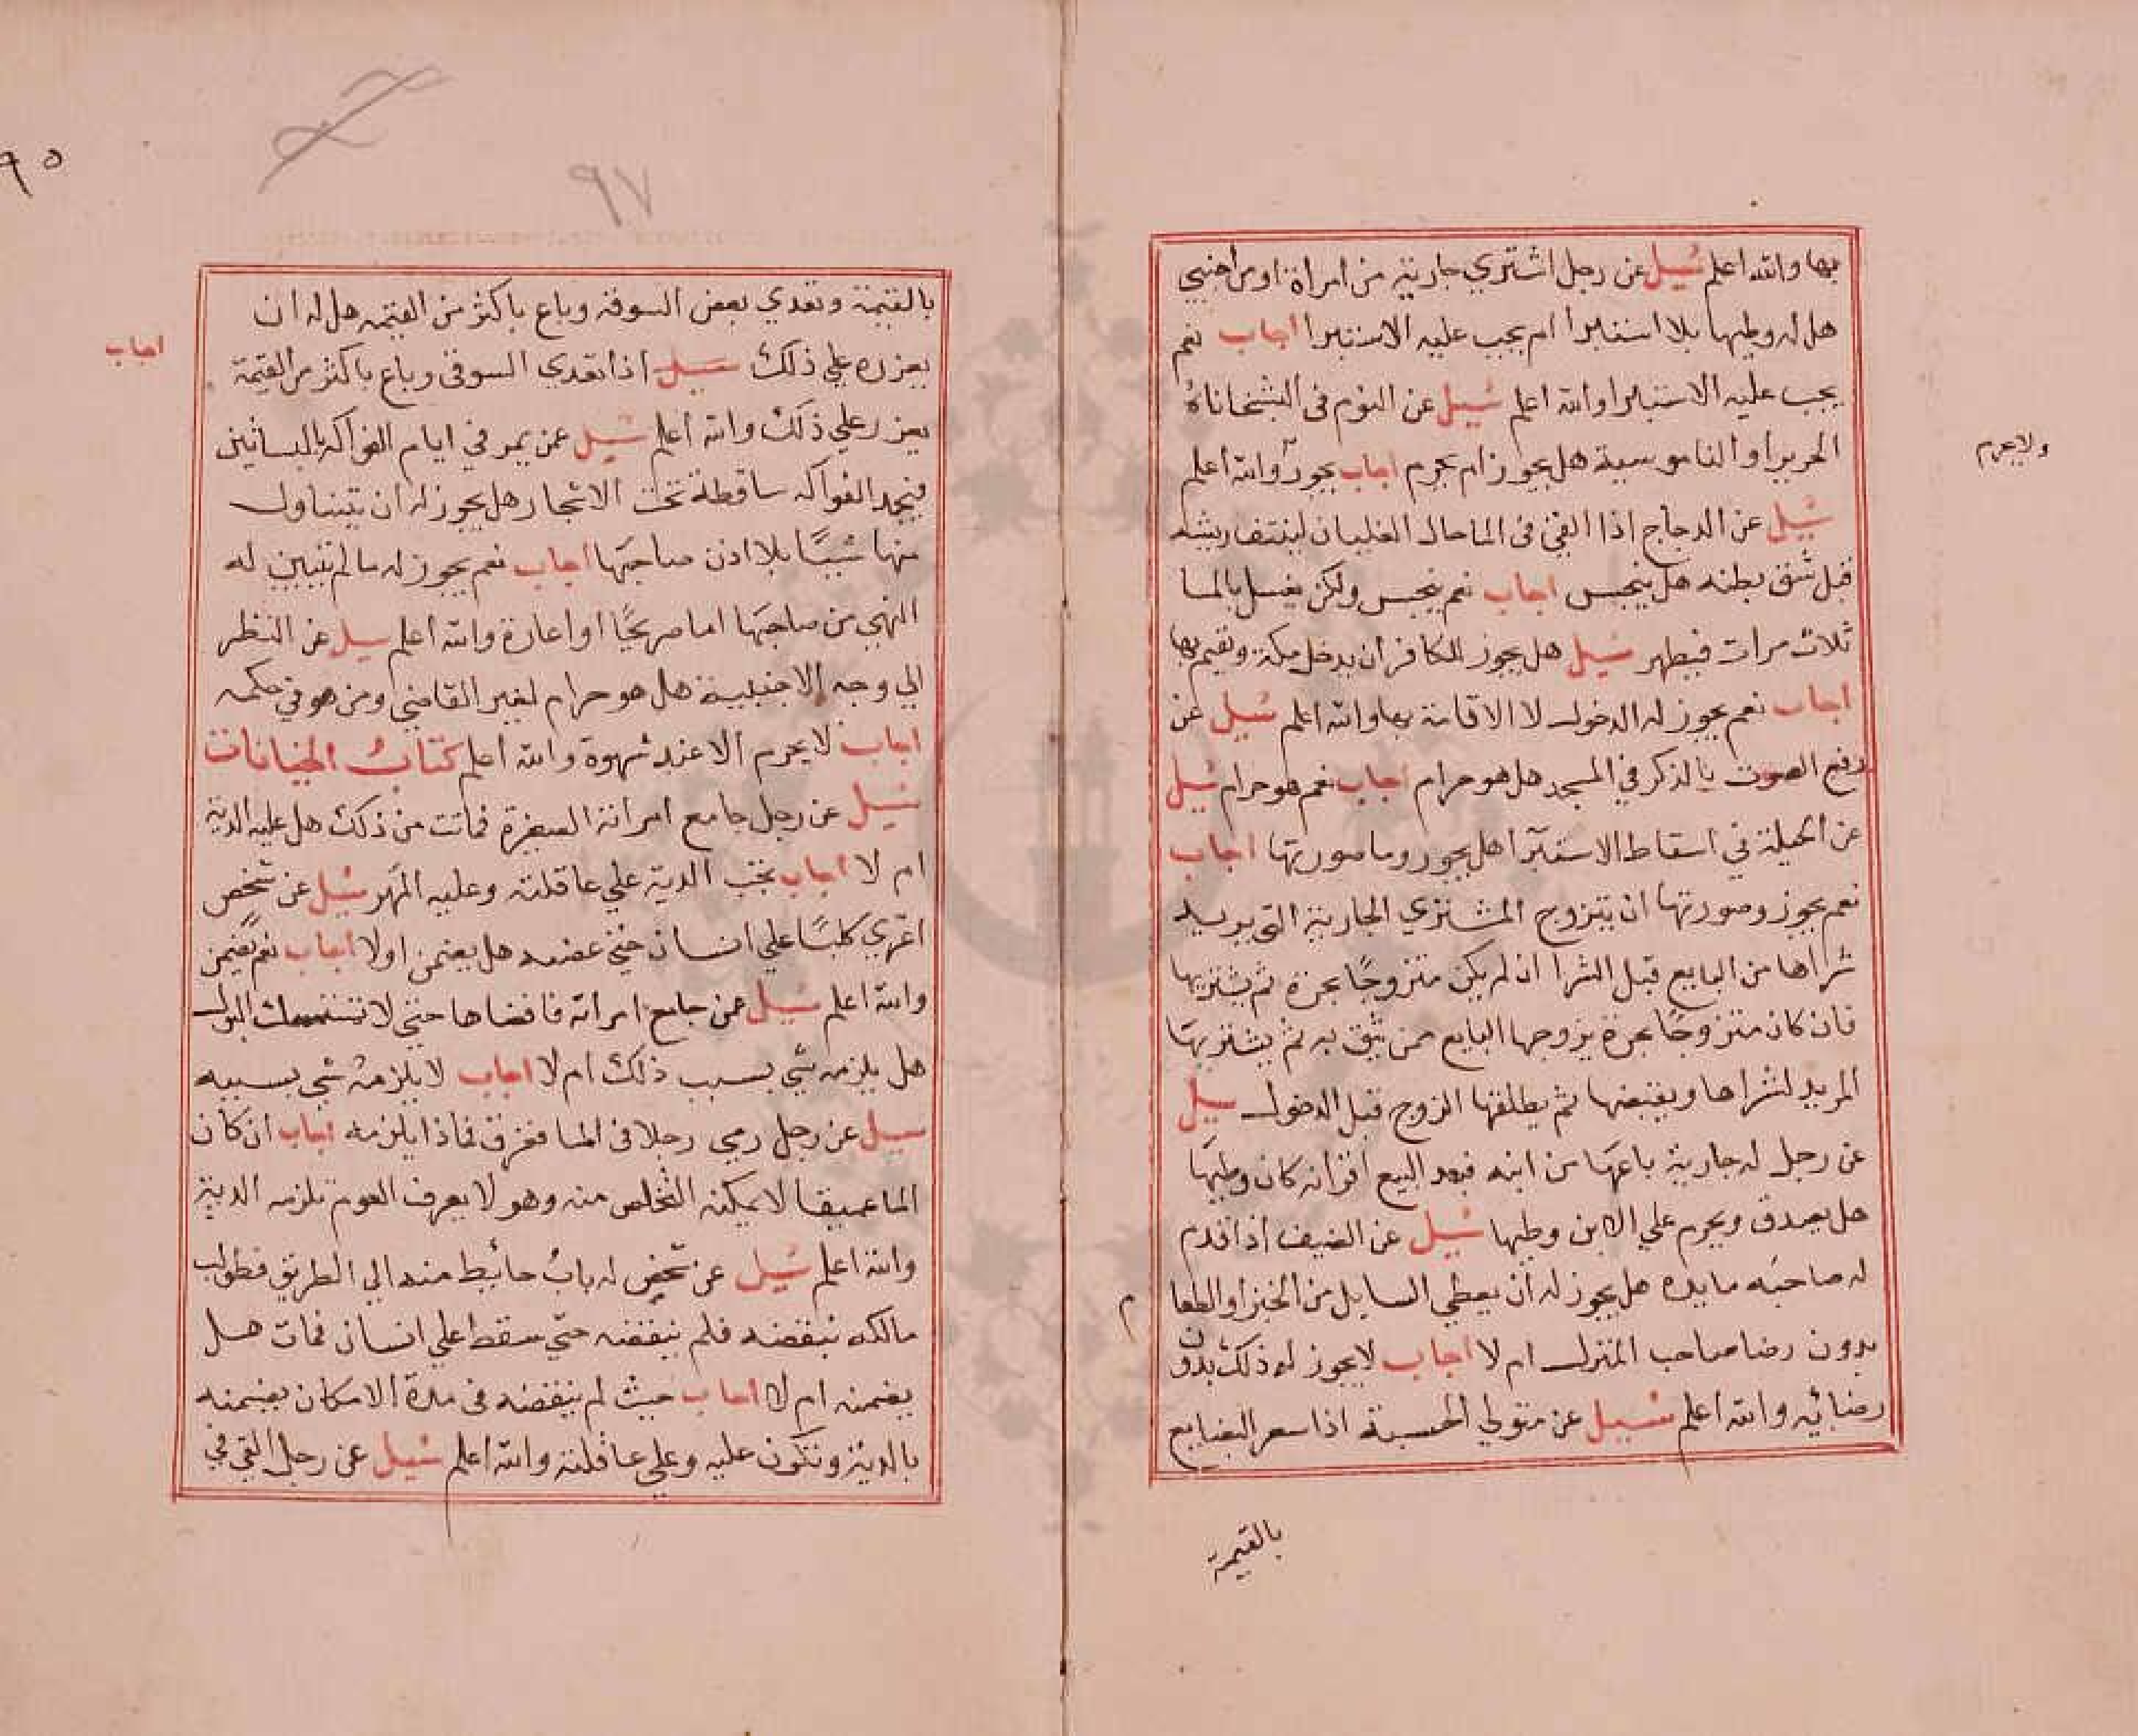 بها والله اعلم سُيل عن رجل اشتري جارية من امراة او من اجنبي
هل له وطيها بلا استبرا ام يجب عليه الاستبرا اجاب نعم
يجب عليه الاستبرا والله اعلم سُيل عن النوم في البشخاناة
الحرير او الناموسية هل يجوز ام يحرم اجاب يجوز والله اعلم
ولا يحرم
سُيل عن الدجاج اذا القي في الما حال الغليان لينتف ريشه
قبل شق بطنه هل ينجس اجاب نعم ينجس ولكن يغسل بالما
ثلاث مرات فيطهر سُيل هل يجوز للكافر ان يدخل مكة ويقيم بها
اجاب نعم يجوز له الدخول لا الاقامة بها والله اعلم سُيل عن
رفع الصوت بالذكر في المسجد هل هو حرام اجاب نعم هو حرام سُيل
عن الحيلة في اسقاط الاستبرا هل يجوز وما صورتها اجاب
نعم يجوز وصورتها ان يتزوج المشتري الجارية التي يريد
شراها من البايع قبل الشرا ان لم يكن متزوجًا بحرة ثم يشتريها
فان كان متزوجًا بحرة يزوجها البايع ممن يثق به ثم يشتريها
المريد لشراها ويقبضها ثم يطلقها الزوج قبل الدخول سيل
عن رجل له جارية باعها من ابنه فبعد البيع اقر انه كان وطيها
هل يصدق ويحرم علي الابن وطيها سُيل عن الضيف اذا قدم
له صاحبه مايده هل يجوز له ان يعطي السايل من الخبز او الطعا
م
بدون رضا صاحب المنزل ام لا اجاب لا يجوز له ذلك بدون
رضائه والله اعلم سُيل عن متولي الحسبة اذا سعر البضايع
بالقيمة
٩٥
٩٧
بالقيمة وتعدي بعض السوقة وباع باكثر من القيمه هل له ان
يعزره علي ذلك سيل اذا تعدي السوقي وباع باكثر من القيمة
اجاب
يعزر علي ذلك والله اعلم سُيل عمن يمر في ايام الفواكه بالبساتين
فيجد الفواكه ساقطة تحت الاشجار هل يجوز له ان يتناول
منها شيًا بلا اذن صاحبها اجاب نعم يجوز له ما لم يتبين له
النهي من صاحبها اما صريحًا او اعارة والله اعلم سيل عن النظر
الي وجه الاجنبية هل هو حرام لغير القاضي ومن هو في حكمه
اجاب لا يحرم الا عند شهوة والله اعلم كتاب الجنايات
سُيل عن رجل جامع امراته الصغيرة فماتت من ذلك هل عليه الدية
ام لا اجاب تجب الدية علي عاقلته وعليه المهر سُيل عن شخص
اغري كلبًا علي انسان حتي عضه هل يضمن او لا اجاب نعم يضمن
والله اعلم سُيل عمن جامع امراته فافضاها حتي لا تستمسك البول
هل يلزمه شي بسبب ذلك ام لا اجاب لا يلزمه شي بسببه
سيل عن رجل رمي رجلا في الما فغرق فماذا يلزمه اجاب ان كان
الما عميقا لا يمكنه التخلص منه وهو لا يعرف العوم تلزمه الدية
والله اعلم سُيل عن شخص له باب حائيط منه الي الطريق فطولب
مالكه بنقضه فلم ينقضه حتي سقط علي انسان فمات هل
يضمنه ام لا اجاب حيث لم ينقضه في مدة الامكان يضمنه
بالدية وتكون عليه وعلي عاقلته والله اعلم سُيل عن رجل القي في